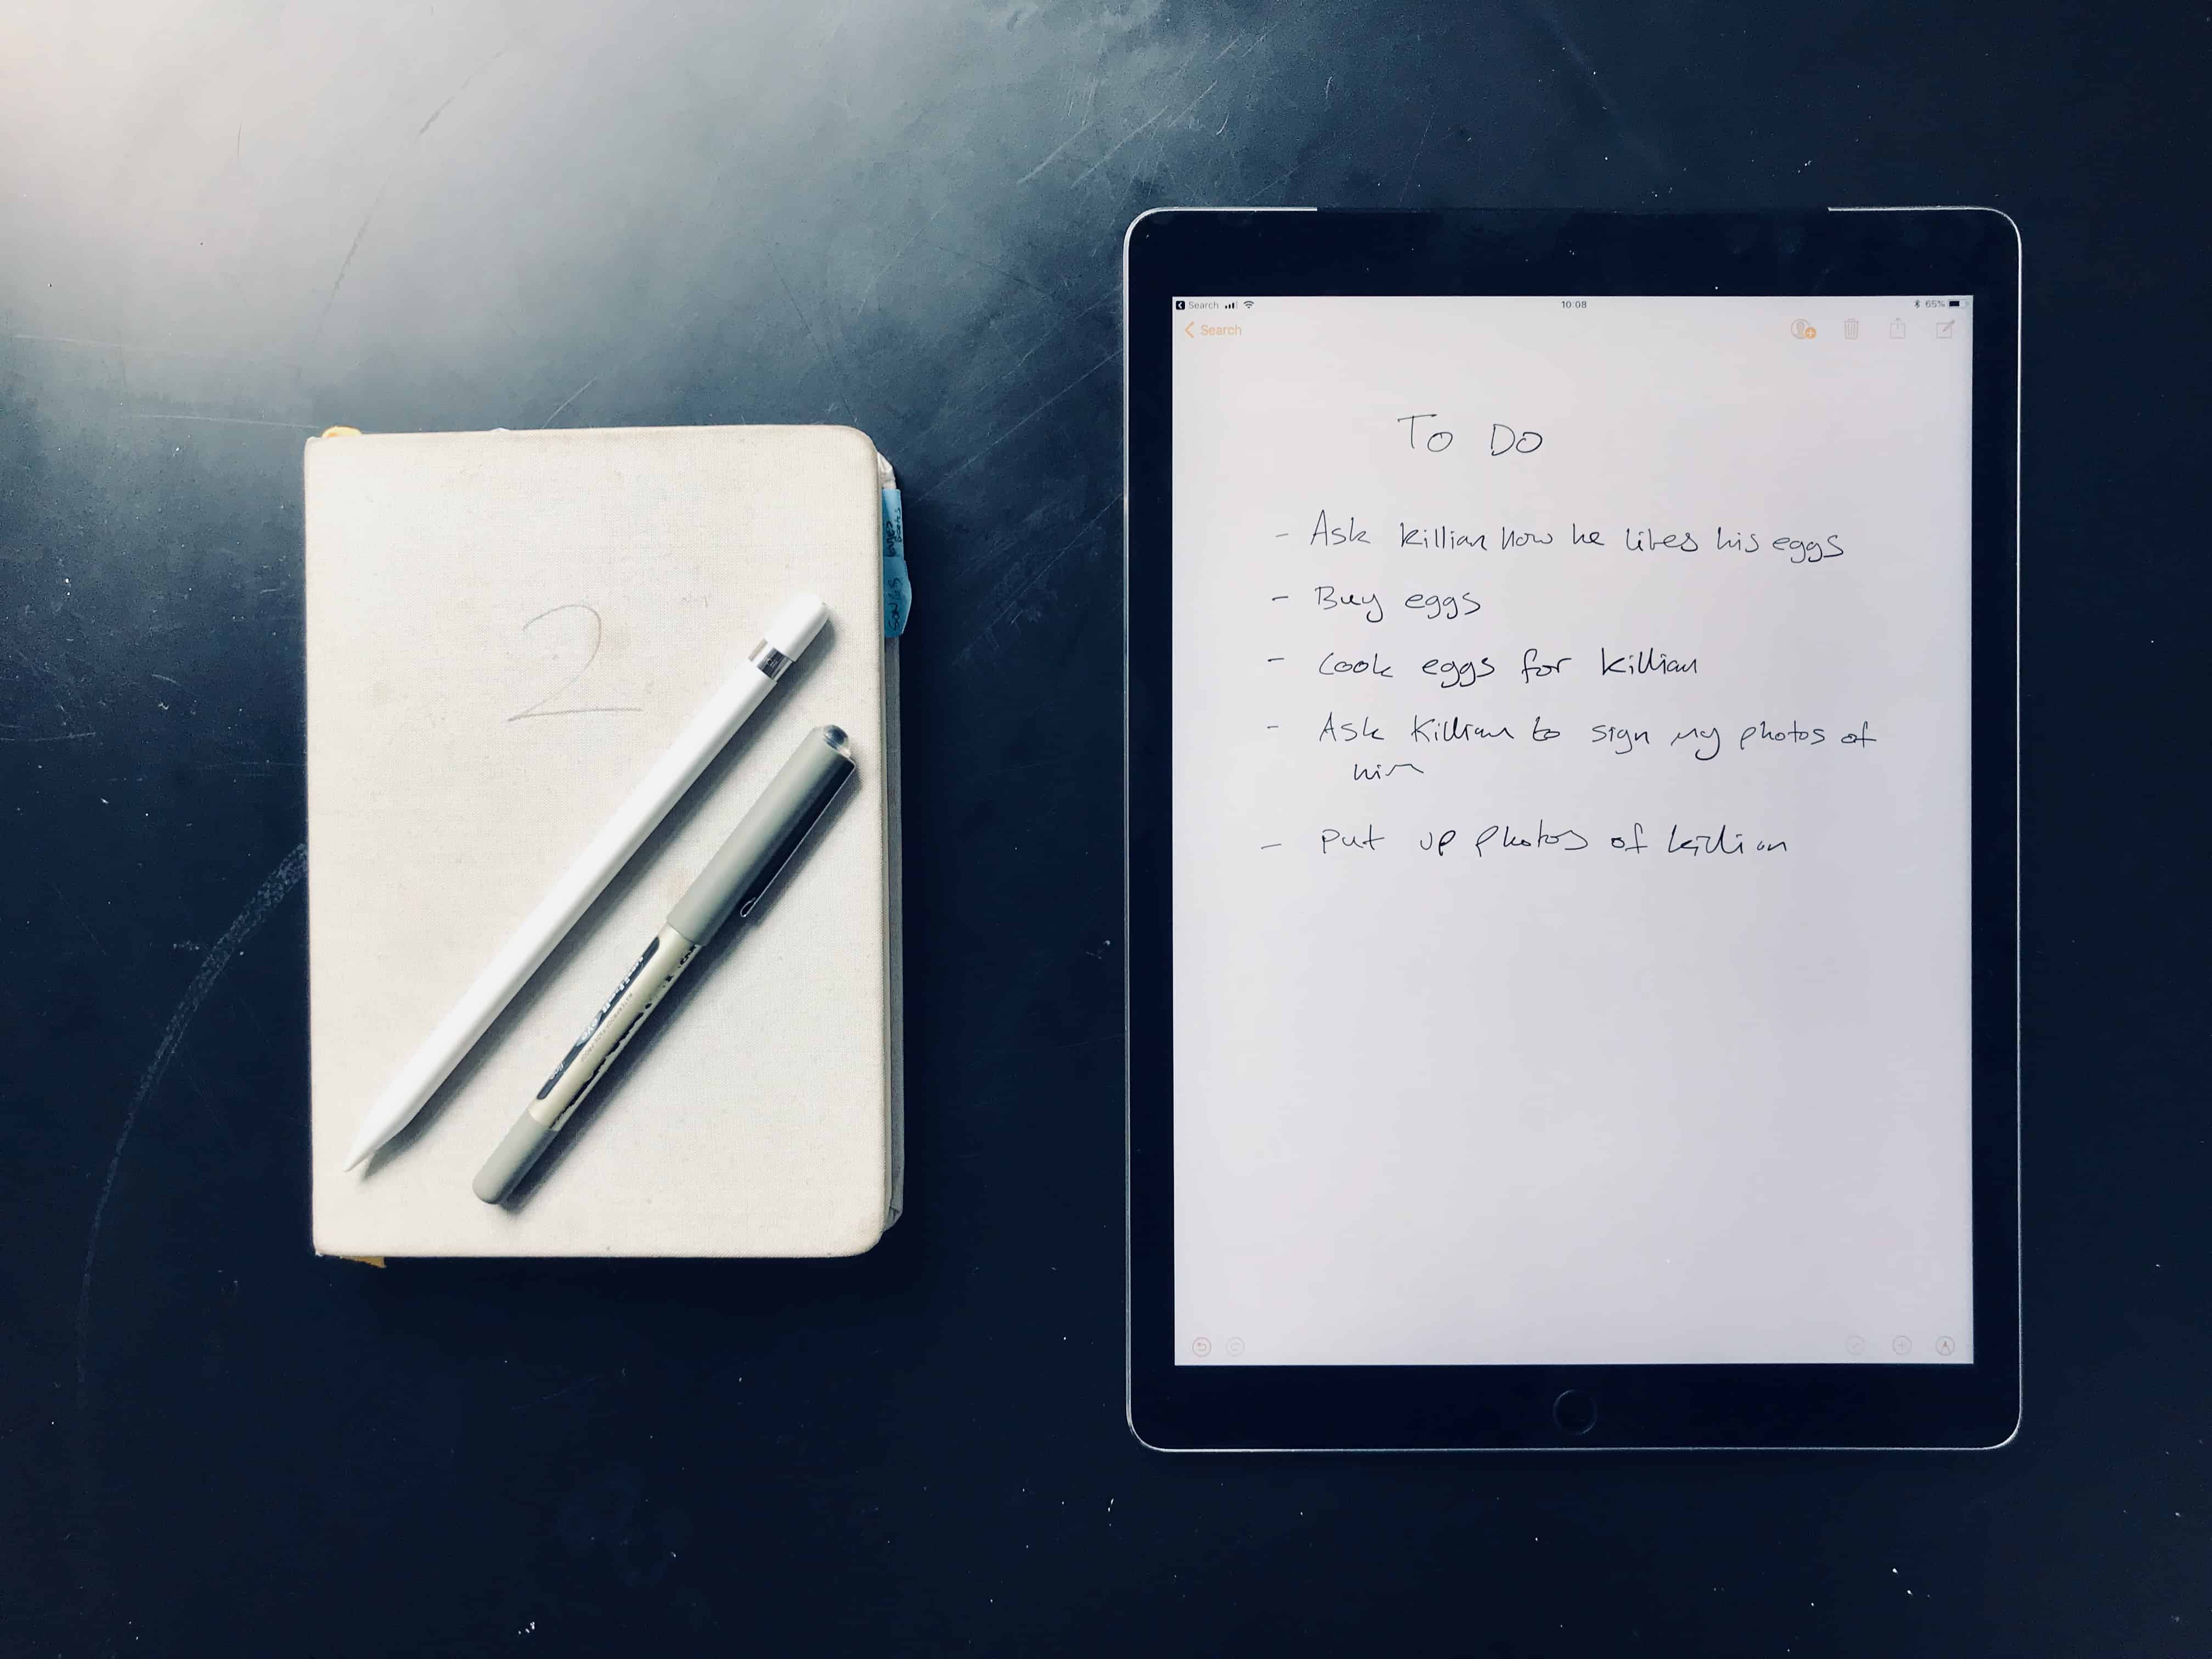 2
SONGS
Search
10:08
65%
Search
To Do
- Ask killian how he likes his eggs
- Buy eggs
- Cook eggs for killian
- Ask Killian to sign my photos of
him
- Put up photos of killian